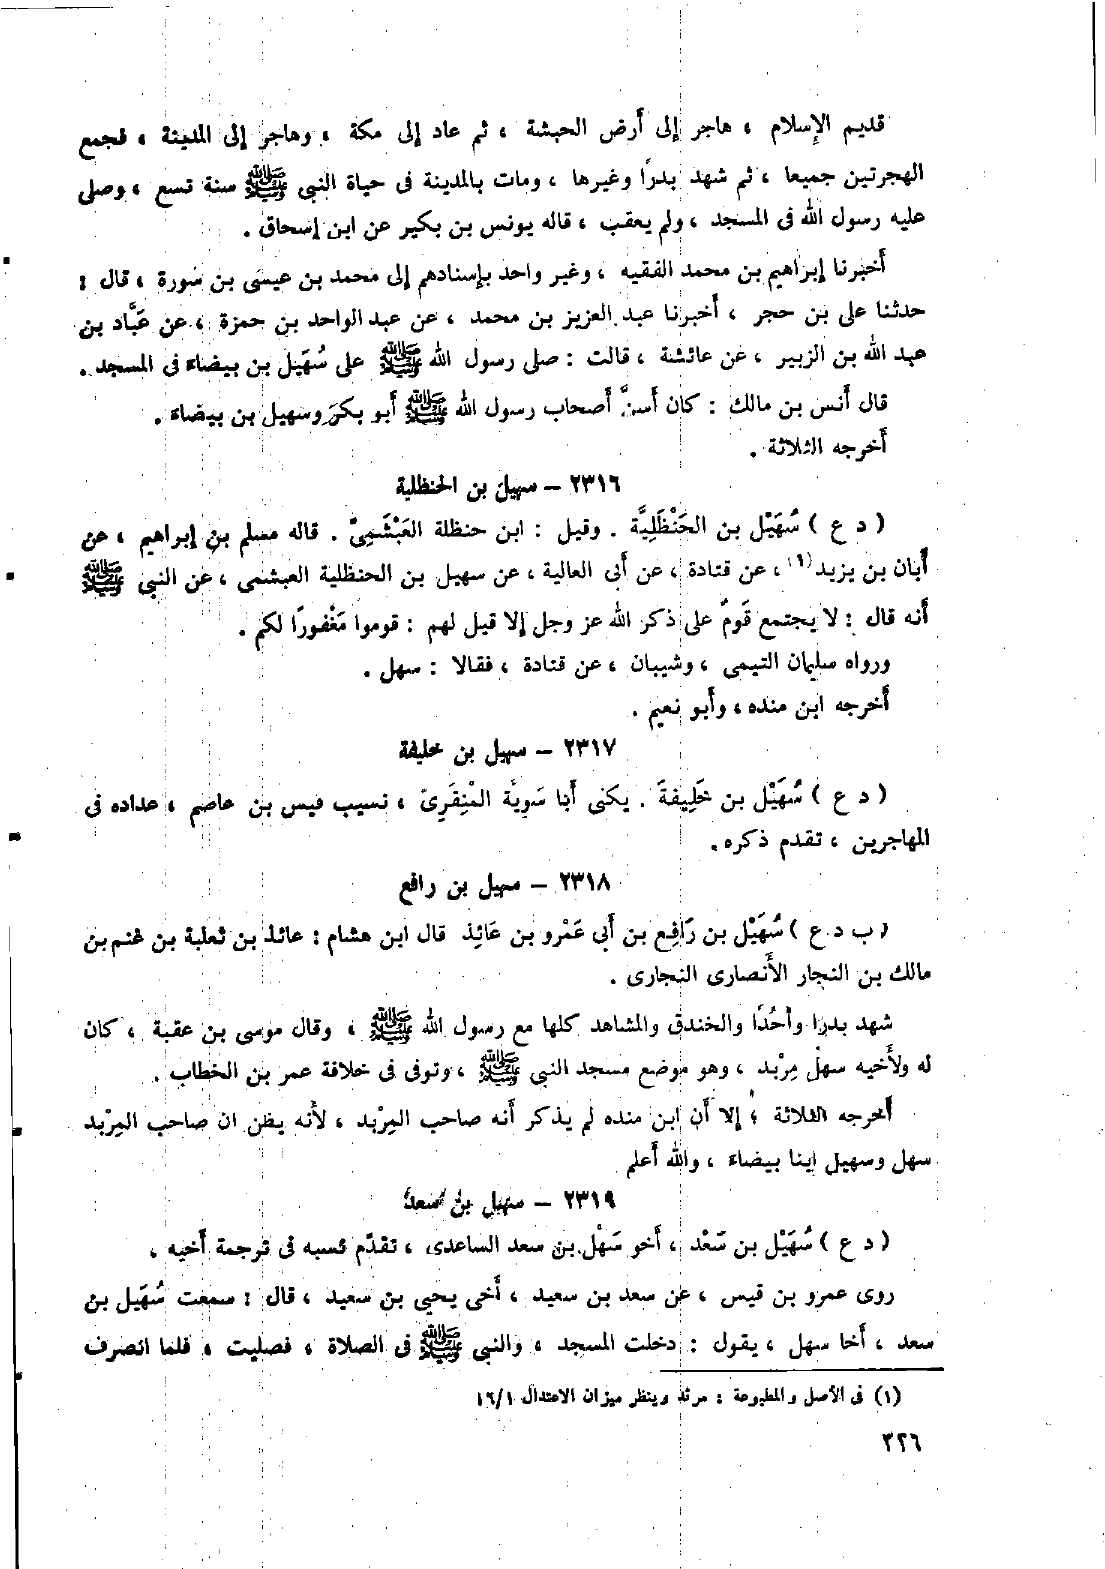 قديم الإسلام ، هاجر إلى أرض الحبشة ، ثم عاد إلى مكة ، وهاجر إلى المدينة ، فجمع
الهجرتين جميعا ، ثم شهد بدرًا وغيرها ، ومات بالمدينة فى حياة النبي ﷺ سنة تسع ، وصلى
عليه رسول الله فى المسجد ، ولم يعقب ، قاله يونس بن بكير عن ابن إسحاق .
أخبرنا إبراهيم بن محمد الفقيه ، وغير واحد بإسنادهم إلى محمد بن عيسى بن سَورة ، قال :
حدثنا على بن حجر ، أخبرنا عبد العزيز بن محمد ، عن عبد الواحد بن حمزة ، عن عَبَّاد بن
عبد الله بن الزبير ، عن عائشة ، قالت : صلى رسول الله ﷺ على سُهَيل بن بيضاء فى المسجد .
قال أنس بن مالك : كان أسنَّ أصحاب رسول الله ﷺ أبو بكر وسهيل بن بيضاء .
أخرجه الثلاثة .
٢٣١٦ – سهيل بن الحنظلية
( د ع ) سُهَيْل بن الحَنْظَلِيَّة . وقيل : ابن حنظلة العَبْشَمِيّ . قاله مسلم بن إبراهيم ، عن
أبان بن يزيد(١) ، عن قتادة ، عن أبى العالية ، عن سهيل بن الحنظلية العبشمى ، عن النبي ﷺ
أنه قال : لا يجتمع قَومٌ على ذكر الله عز وجل إلا قيل لهم : قوموا مَغْفورًا لكم .
ورواه سليمان التيمى ، وشيبان ، عن قتادة ، فقالا : سهل .
أخرجه ابن منده ، وأبو نعيم .
٢٣١٧ – سهيل بن خليفة
( د ع ) سُهَيْل بن خَلِيفةَ . يكنى أبا سَوِيَّة المْنِقَرِىّ ، نسيب قيس بن عاصم ، عداده فى
المهاجرين ، تقدم ذكره .
٢٣١٨ – سهيل بن رافع
( ب د ع ) سُهَيْل بن رَافِع بن أبى عَمْرو بن عَائِذ قال ابن هشام : عائذ بن ثعلبة بن غنم بن
مالك بن النجار الأنصارى النجارى .
شهد بدرًا وأُحُدًا والخندق والمشاهد كلها مع رسول الله ﷺ ، وقال موسى بن عقبة ، كان
له ولأخيه سهل مِرْبد ، وهو موضع مسجد النبي ﷺ ، وتوفى فى خلافة عمر بن الخطاب .
أخرجه الثلاثة ؛ إلا أن ابن منده لم يذكر أنه صاحب المِرْبد ، لأنه يظن ان صاحب المِرْبد
سهل وسهيل ابنا بيضاء ، والله أعلم
٢٣١٩ – سهيل بن سعد
( د ع ) سُهَيْل بن سَعْد ، أخو سَهْل بن سعد الساعدى ، تقدّم نسبه فى ترجمة أخيه ،
روى عمرو بن قيس ، عن سعد بن سعيد ، أخى يحيى بن سعيد ، قال : سمعت سُهَيل بن
سعد ، أخا سهل ، يقول : دخلت المسجد ، والنبي ﷺ فى الصلاة ، فصليت ، فلما انصرف
(١) فى الأصل والمطبوعة : مرثد وينظر ميزان الاعتدال ١٦/١
٣٢٦